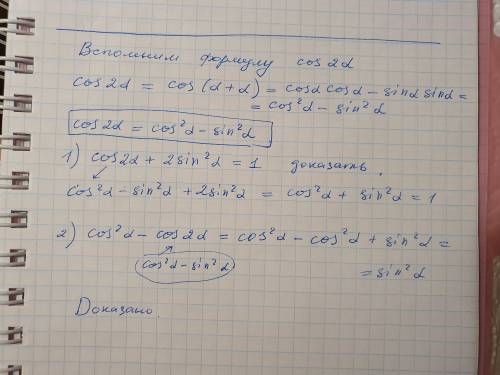 Вспомним формулу cos 2α
cos 2α = cos (α + α) = cosα cosα − sinα sinα =
= cos²α − sin²α
cos 2α = cos²α − sin²α
1) cos2α + 2sin²α = 1 доказать.
cos²α − sin²α + 2sin²α = cos²α + sin²α = 1
2) cos²α − cos2α = cos²α − cos²α + sin²α =
cos²α − sin²α
= sin²α
Доказано.